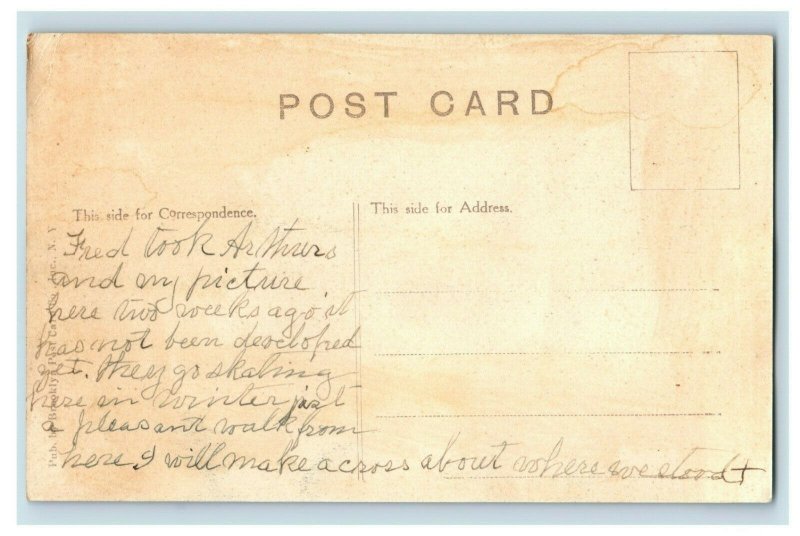 POST CARD
This side for Correspondence.
This side for Address.
Pub. by Brooklyn Post Card Co., Inc., N. Y.
Fred took Arthurs
and my picture
here two weeks ago it
has not been developed
yet. they go skating
here in winter just
a pleasant walk from
here I will make a cross about where we stood +